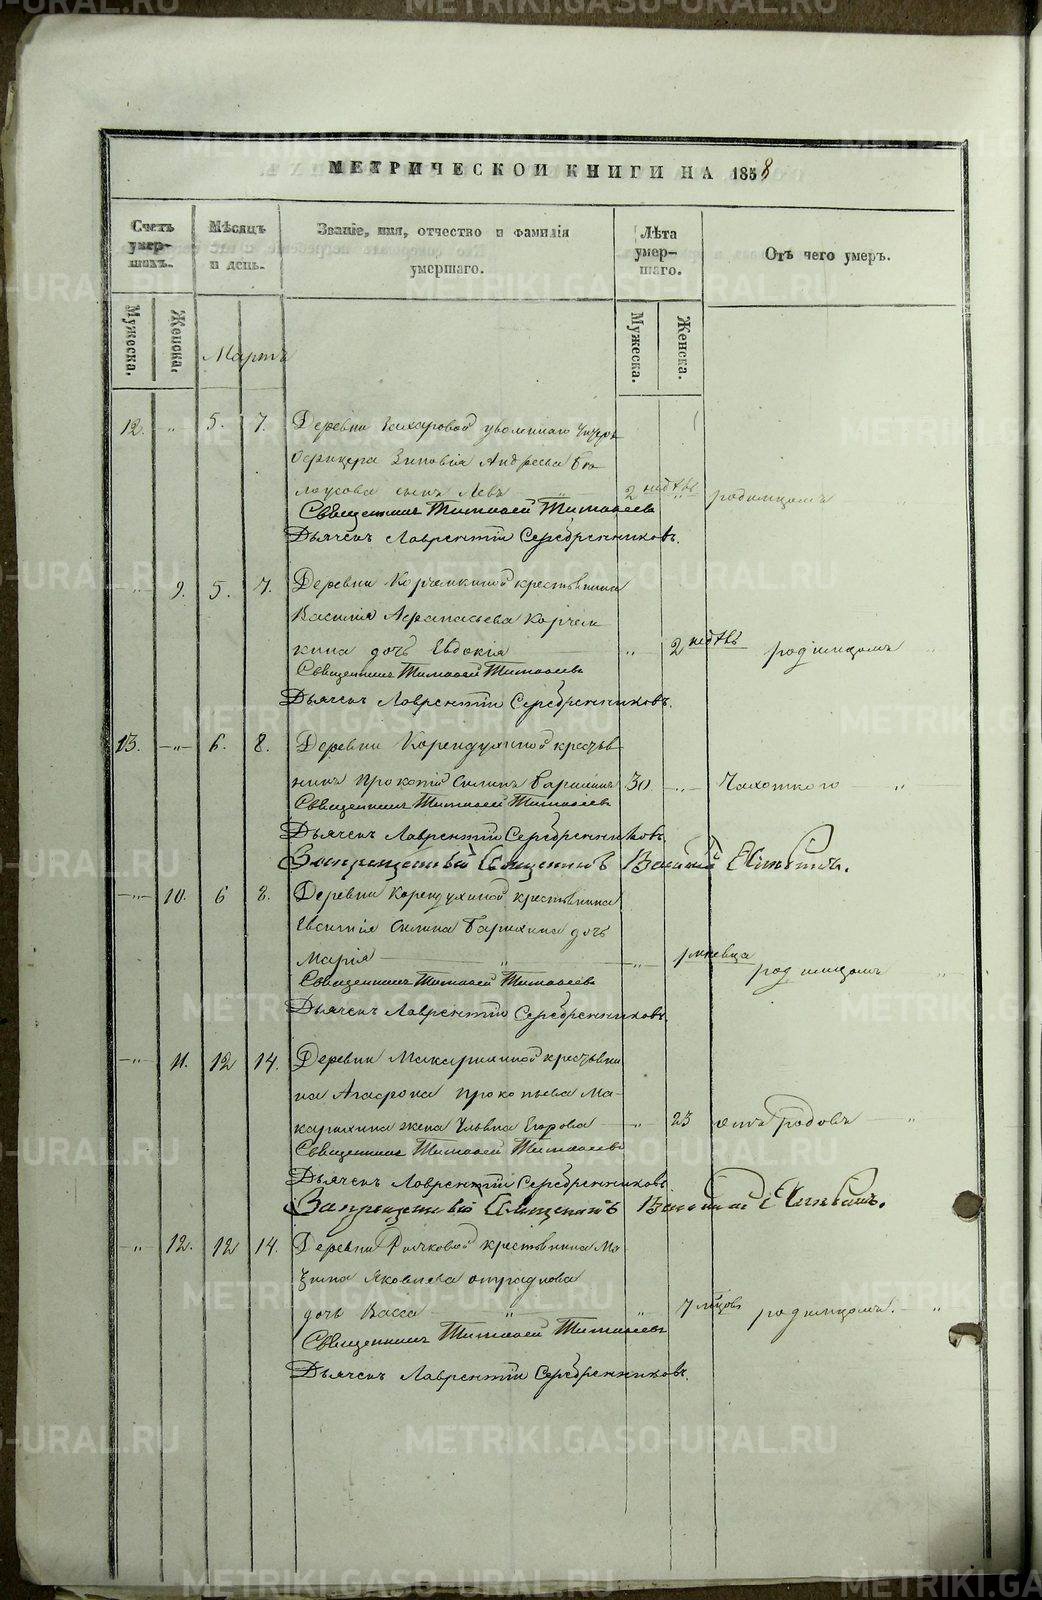 МЕТРИЧЕСКОЙ КНИГИ НА 1858
Счетъ умер-шихъ.
Мѣсяцъ и день.
Званіе, имя, отчество и фамилія
умершаго.
Лѣта умер-шаго.
Отъ чего умеръ.
Мужеска.
Женска.
Мартъ
Мужеска.
Женска.
12. „ 5. 7. Деревни Захаровой уволеннаго Унтеръ
Офицера Зиновія Андреева Бѣ
лоусова сынъ Левъ 2 недѣль родимцомъ
Священникъ Тимоѳей Тимоѳеевъ
Дьячекъ Лаврентій Серебренниковъ.
„ 9. 5. 7. Деревни Корчемкиной крестьянина
Василія Аѳанасьева Корчем
кина дочь Евдокія „ 2 недѣль родимцомъ „
Священникъ Тимоѳей Тимоѳеевъ
Дьячекъ Лаврентій Серебренниковъ.
13. „ 6. 8. Деревни Корендухиной крестья
нинъ Прокопій Силинъ Барихинъ 30 „ Чахоткою „
Священникъ Тимоѳей Тимоѳеевъ
Дьячекъ Лаврентій Серебренниковъ
Запрещенный Священникъ
„ 10. 6 8. Деревни Корендухиной крестьянина
Евсигнія Силина Барихина дочь
Марія „ „ 1 мѣсяца родимцомъ „
Священникъ Тимоѳей Тимоѳеевъ
Дьячекъ Лаврентій Серебренниковъ.
„ 11. 12 14. Деревни Макарихиной крестьяни
на Агафона Прокопьева Ма-
карихина жена Ульяна Егорова „ 23 отъ Родовъ „
Священникъ Тимоѳей Тимоѳеевъ
Дьячекъ Лаврентій Серебренниковъ.
Запрещенный Священникъ
„ 12. 12 14. Деревни Ручковой крестьянина Ма
дочь Васса „ „ 7 родимцомъ. „
Священникъ Тимоѳей Тимоѳеевъ
Дьячекъ Лаврентій Серебренниковъ.
METRIKI.GASO-URAL.RU